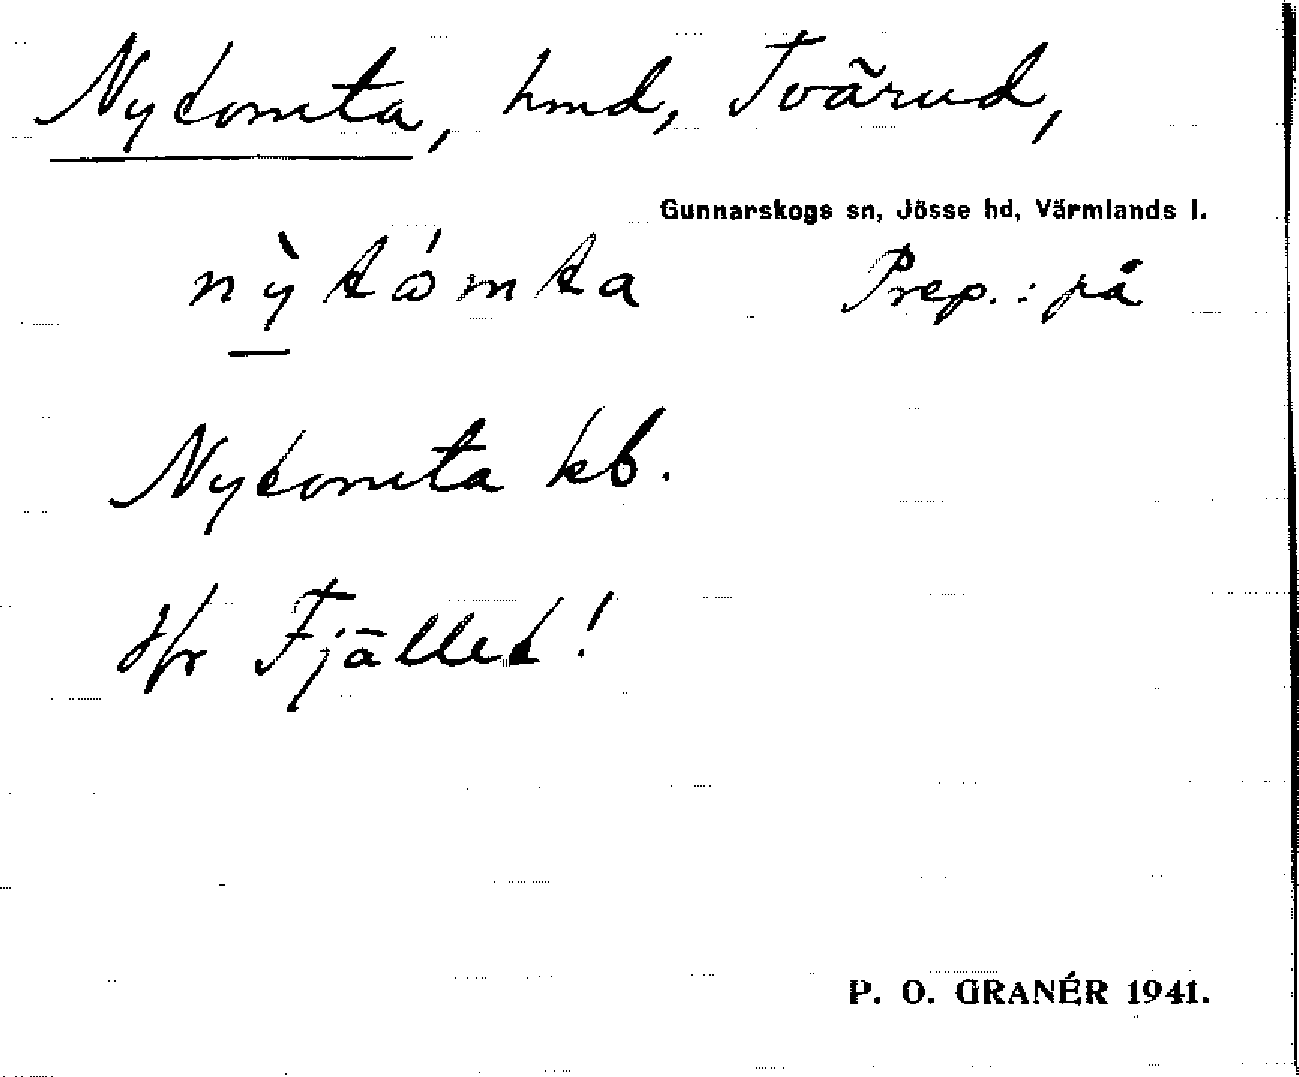 Nytomta, hmd, Tvärud,
Gunnarskogs sn, Jösse hd, Värmlands l.
nỳ̠tómta Prep.: på
Nytomta kb.
Jfr Fjället!
P. O. GRANÉR 1941.